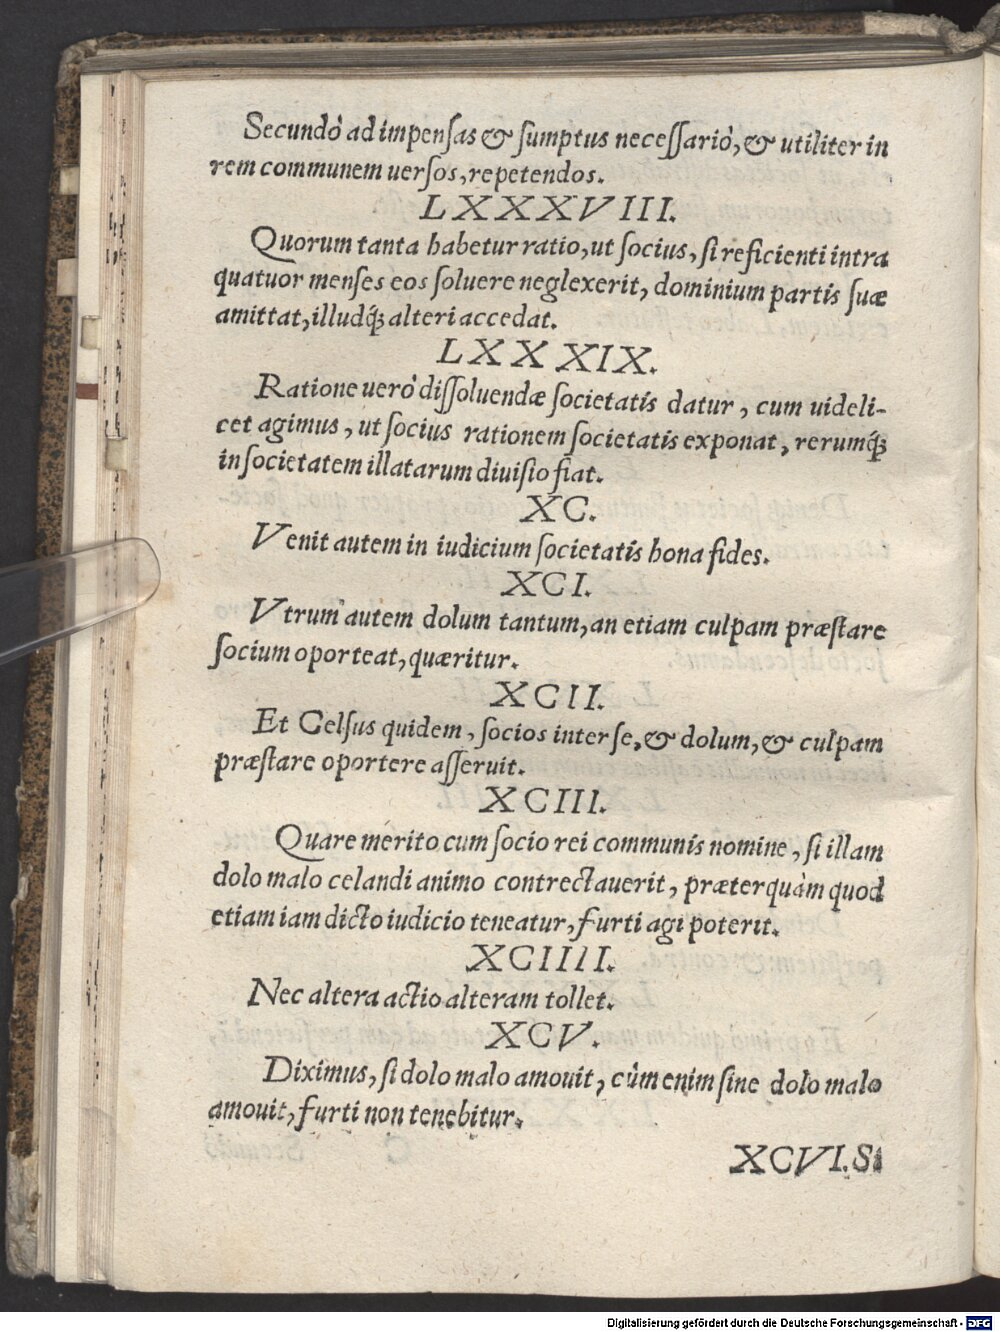 Secundò ad impensas & sumptus necessariò, & utiliter in
rem communem uersos, repetendos.
LXXXVIII.
Quorum tanta habetur ratio, ut socius, si reficienti intra
quatuor menses eos soluere neglexerit, dominium partis suæ
amittat, illudq́; alteri accedat.
LXXXIX.
Ratione uerò dissoluendæ societatis datur, cum uideli-
cet agimus, ut socius rationem societatis exponat, rerumq́;
in societatem illatarum diuisio fiat.
XC.
Venit autem in iudicium societatis bona fides.
XCI.
Vtrum autem dolum tantum, an etiam culpam præstare
socium oporteat, quæritur.
XCII.
Et Celsus quidem, socios inter se, & dolum, & culpam
præstare oportere asseruit.
XCIII.
Quare merito cum socio rei communis nomine, si illam
dolo malo celandi animo contrectauerit, præterquàm quod
etiam iam dicto iudicio teneatur, furti agi poterit.
XCIIII.
Nec altera actio alteram tollet.
XCV.
Diximus, si dolo malo amouit, cùm enim sine dolo malo
amouit, furti non tenebitur.
XCVI. Si
Digitalisierung gefördert durch die Deutsche Forschungsgemeinschaft - DFG